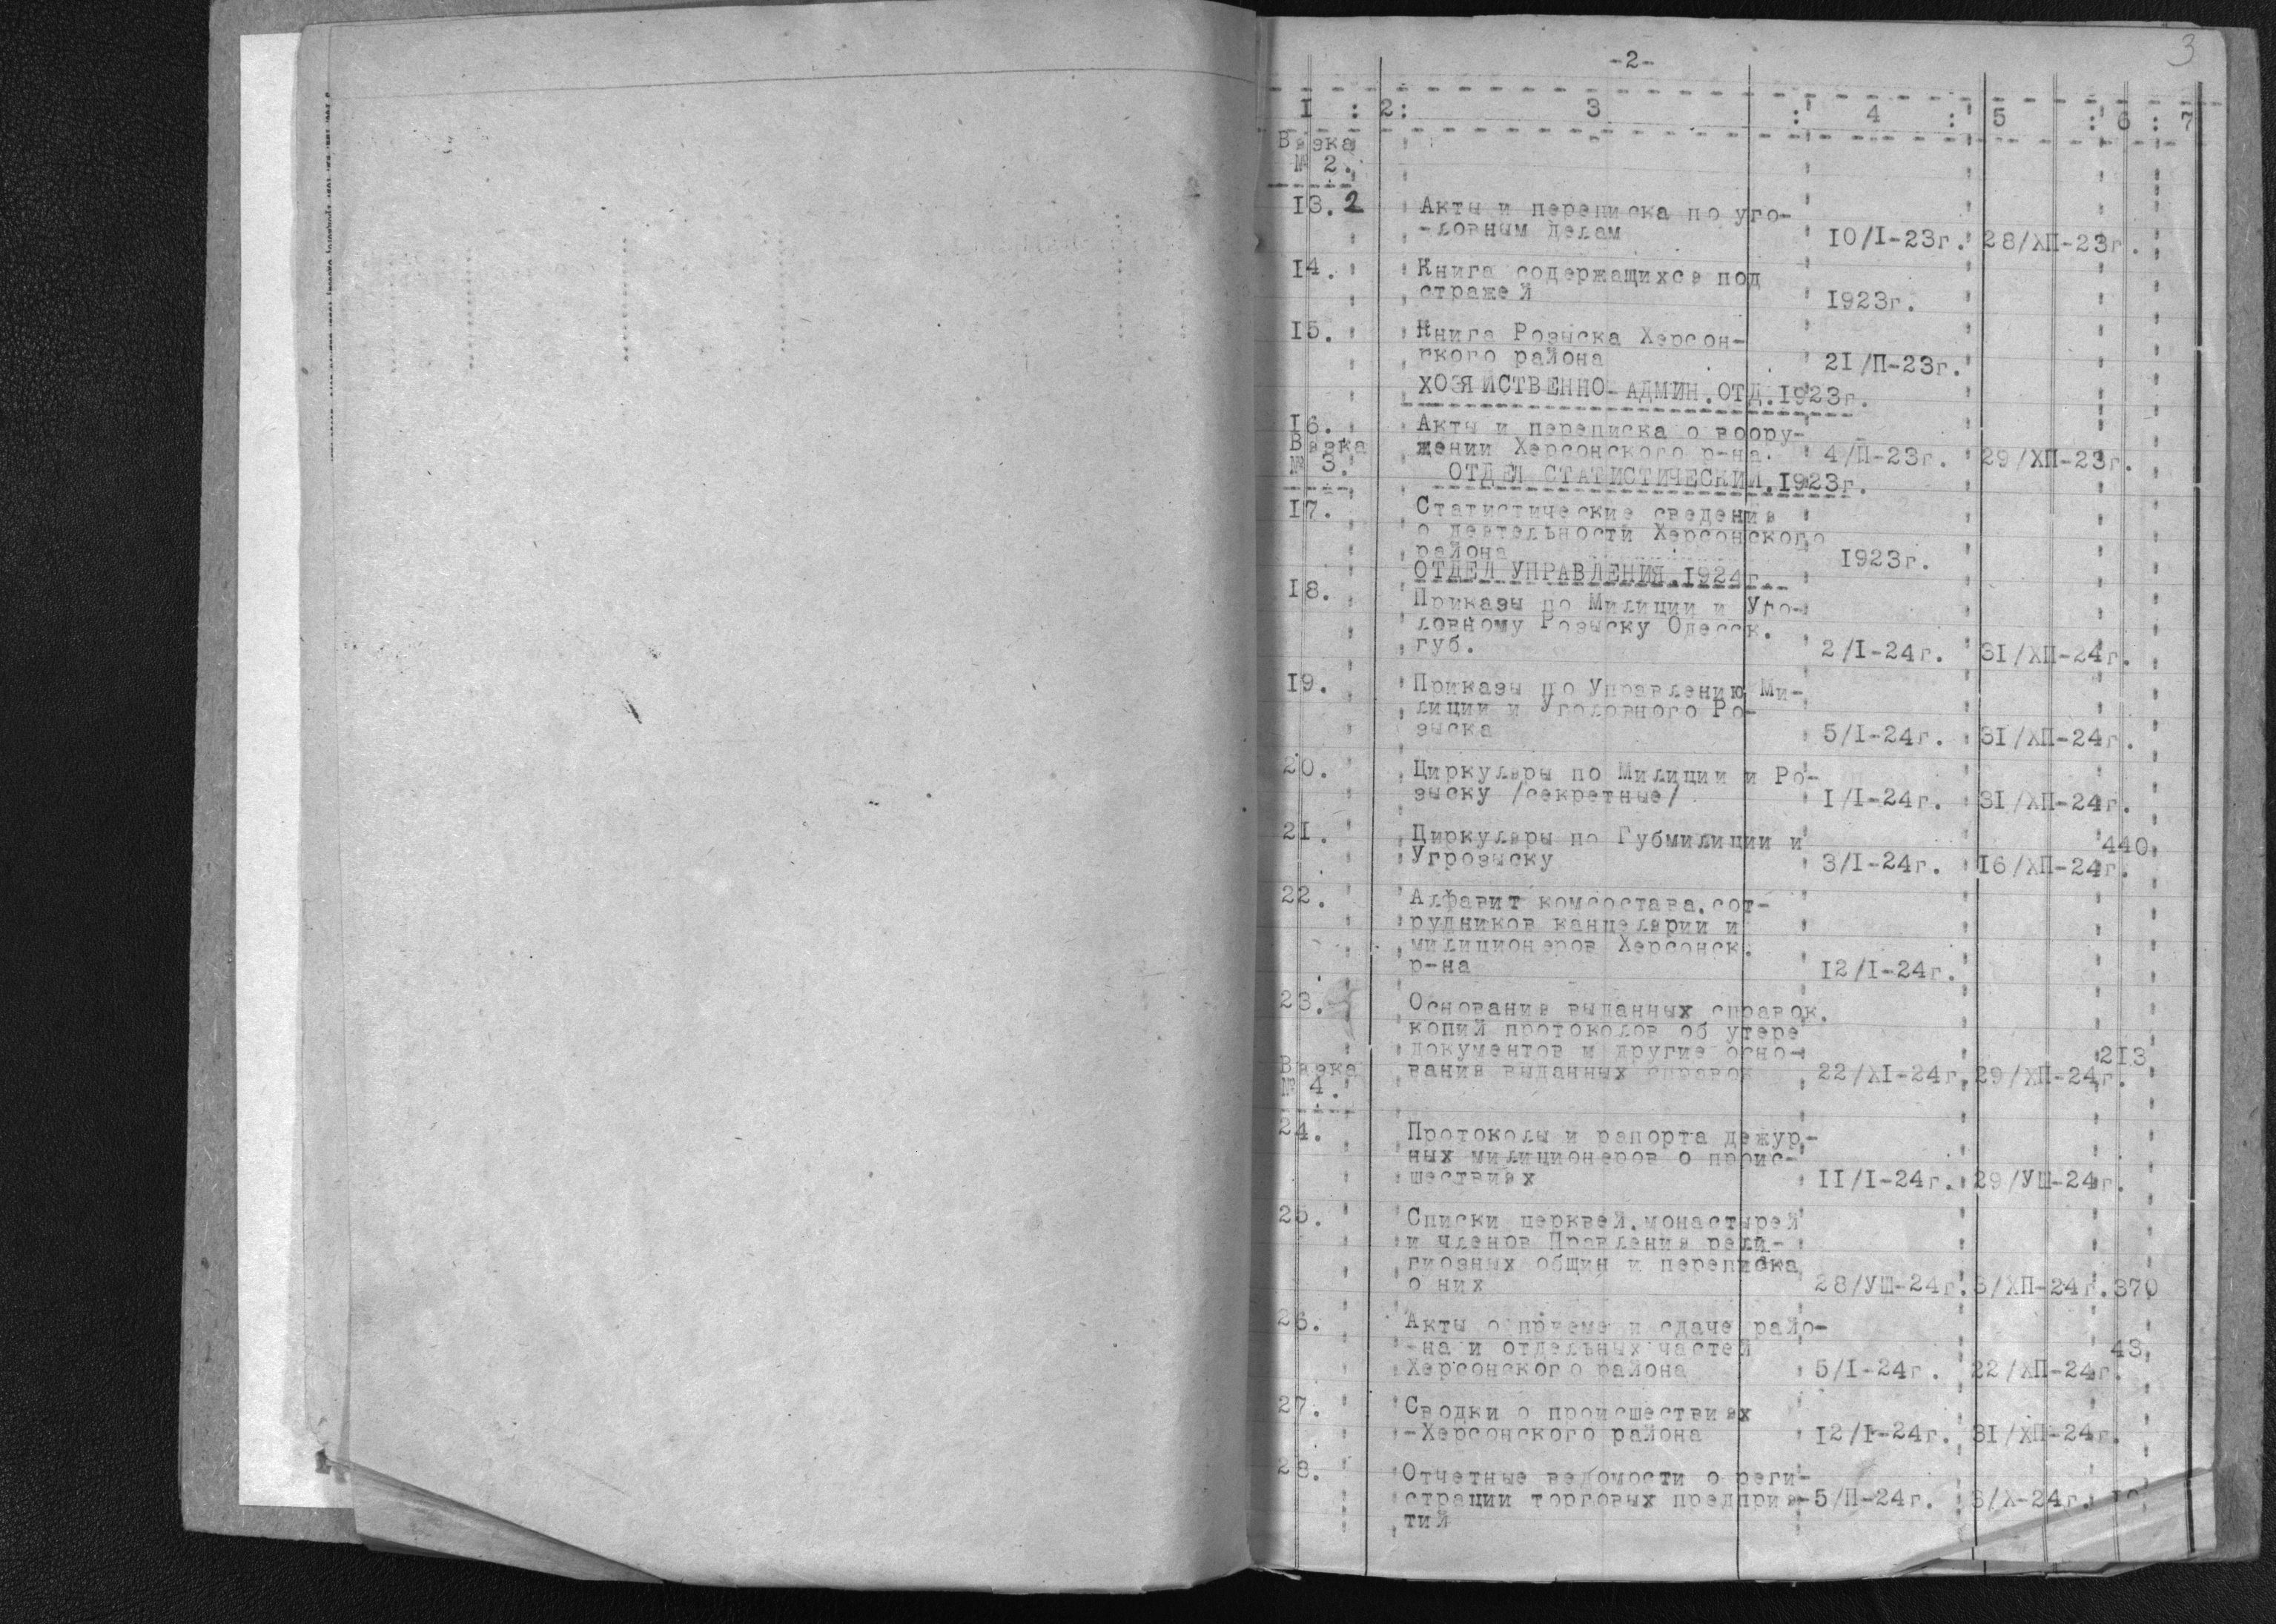 3
-2-
1 : 2: 3 : 4 : 5 : 6 : 7
Вязка
№ 2.
13. 2 Акты и переписка по уго-
-ловным делам 10/I-23г. 28/ХП-23г.
14. Книга содержащихся под
стражей 1923г.
15. Книга Розыска Херсон-
ского района 21/П-23г.
ХОЗЯЙСТВЕННО-АДМИН.ОТД.1923г.
16. Акты и переписка о воору-
Вязка жении Херсонского р-на. 4/П-23г. 29/ХП-23г.
№ 3. ОТДЕЛ СТАТИСТИЧЕСКИЙ.1923г.
17. Статистические сведения
о деятельности Херсонского
района 1923г.
ОТДЕЛ УПРАВЛЕНИЯ.1924г.
18. Приказы по Милиции и Уго-
ловному Розыску Одесск.
губ. 2/I-24г. 31/ХП-24г.
19. Приказы по Управлению Ми-
лиции и Уголовного Ро-
зыска 5/I-24г. 31/ХП-24г.
20. Циркуляры по Милиции и Ро-
зыску /секретные/ 1/I-24г. 31/ХП-24г.
21. Циркуляры по Губмилиции и 440
Угрозыску 3/I-24г. 16/ХП-24г.
22. Алфавит комсостава,сот-
рудников канцелярии и
милиционеров Херсонск.
р-на 12/I-24г.
23. Основания выданных справок,
копий протоколов об утере
документов и другие осно- 213
Вязка вания выданных справок 22/XI-24г. 29/ХП-24г.
№ 4.
24. Протоколы и рапорта дежур-
ных милиционеров о проис-
шествиях 11/I-24г. 29/УШ-24г.
25. Списки церквей,монастырей
и членов Правления рели-
гиозных общин и переписка
о них 28/УШ-24г. 3/ХП-24г. 370
26. Акты о приеме и сдаче райо-
-на и отдельных частей 43
Херсонского района 5/I-24г. 22/ХП-24г.
27. Сводки о происшествиях
-Херсонского района 12/I-24г. 31/ХП-24г.
28. Отчетные ведомости о реги-
страции торговых предприя- 5/П-24г. 3/Х-24г.
тий